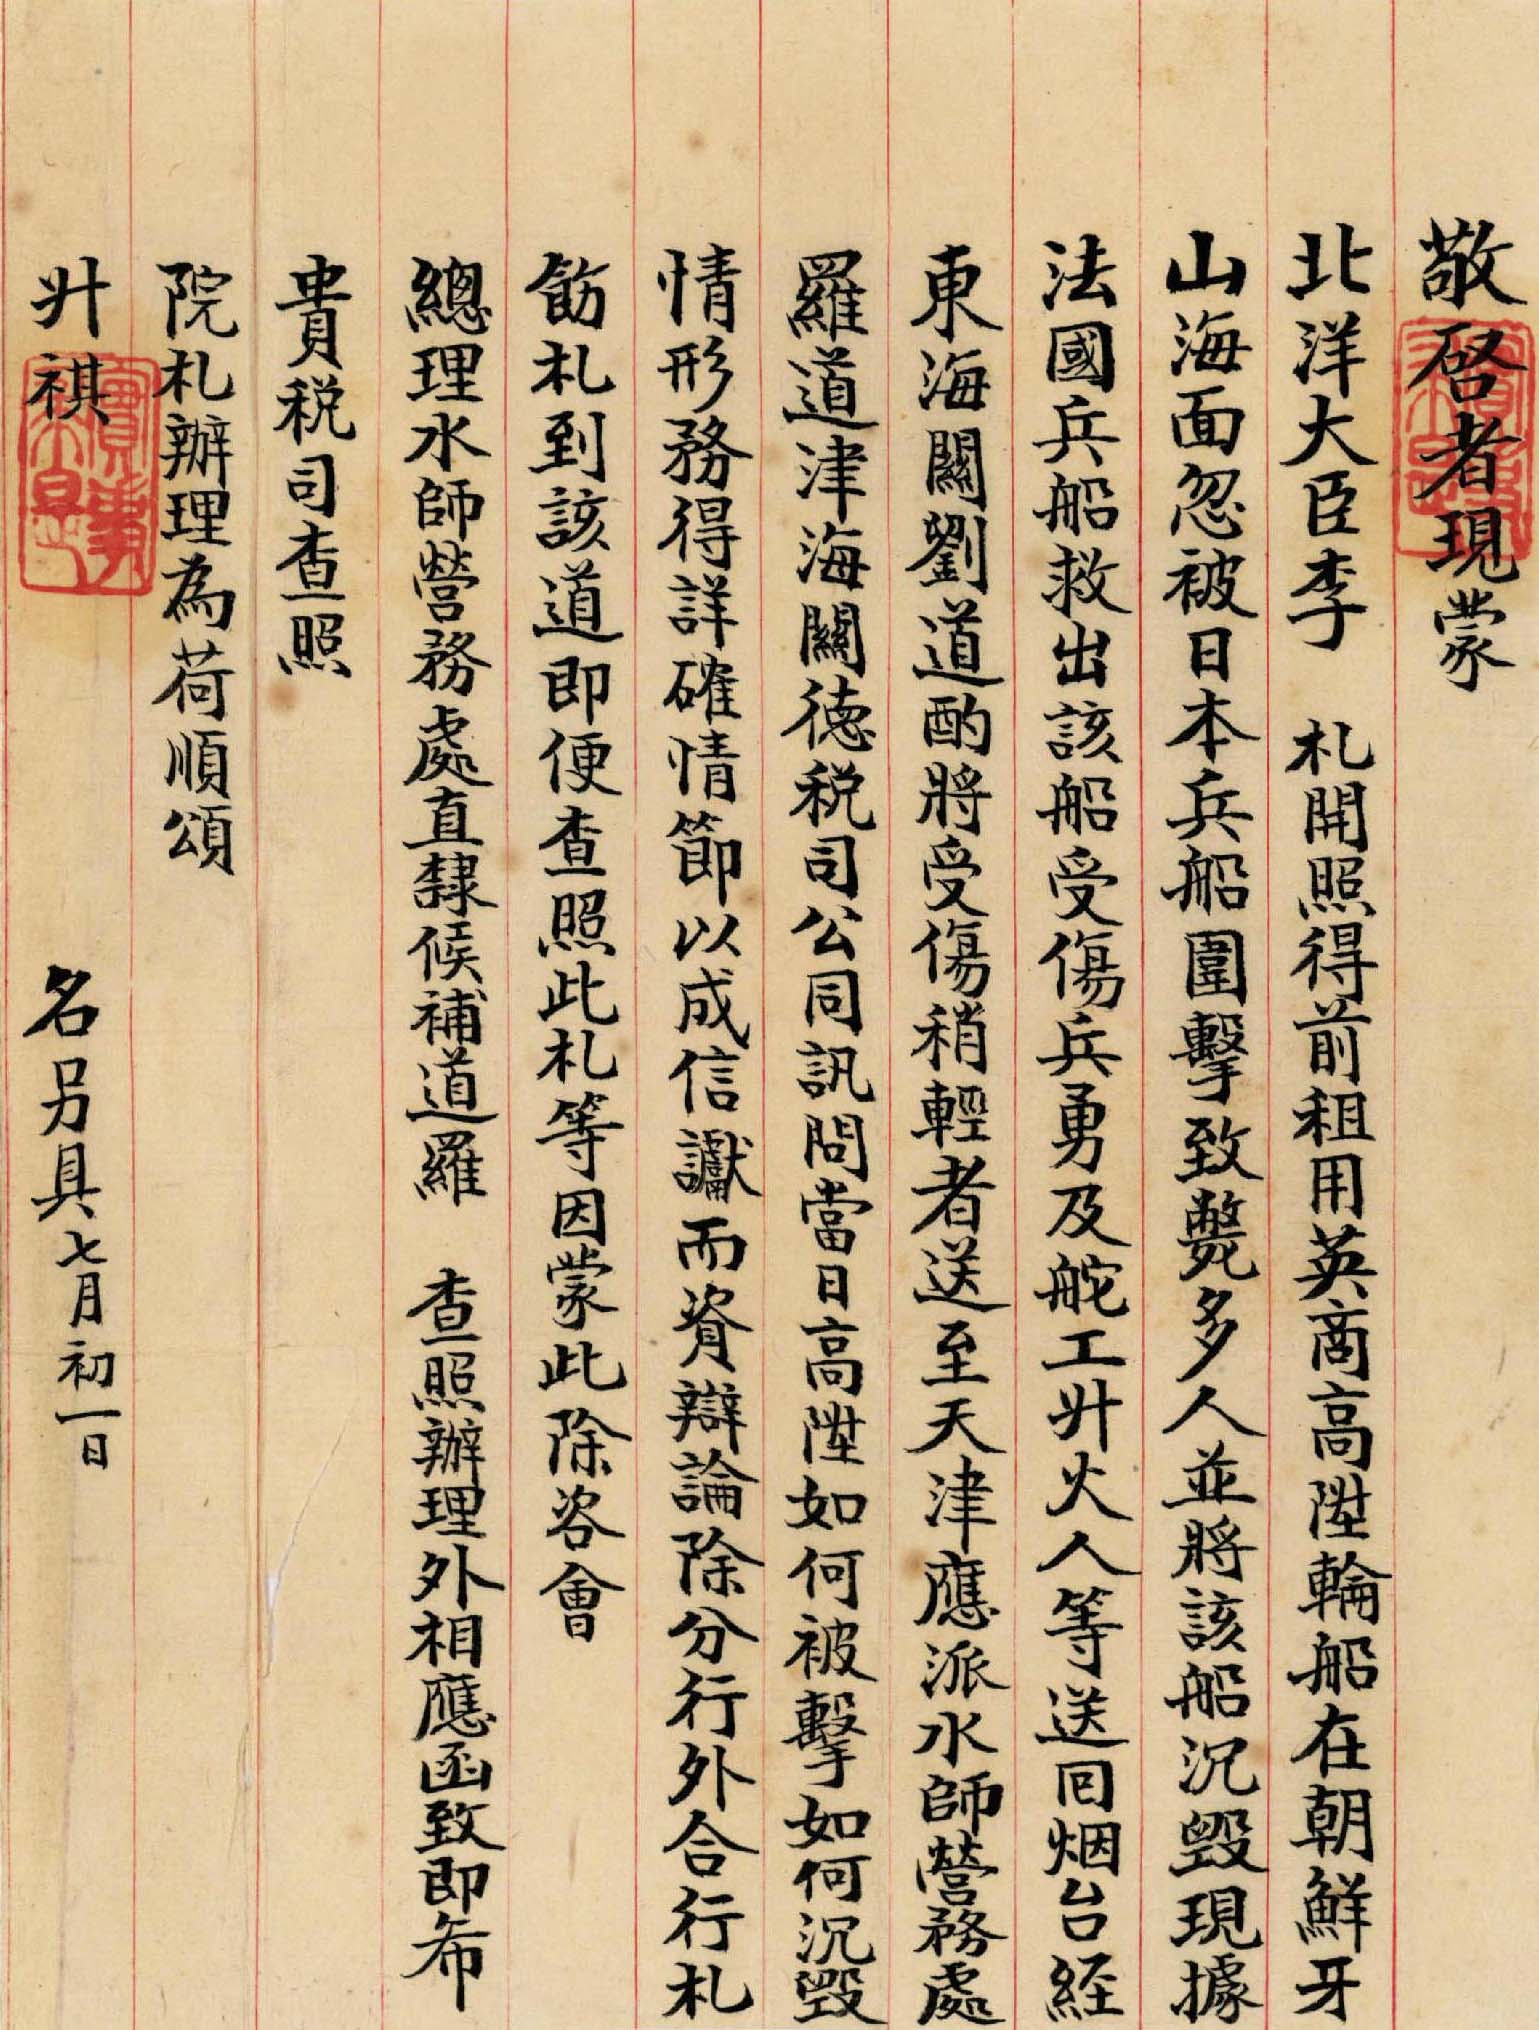 敬啓者現蒙
北洋大臣李 札開照得前租用英商高陞輪船在朝鮮牙
山海面忽被日本兵船圍擊致斃多人並將該船沉毀現據
法國兵船救出該船受傷兵勇及舵工升火人等送回烟台經
東海關劉道酌將受傷稍輕者送至天津應派水師營務處
羅道津海關德税司公同訊問當日高陞如何被擊如何沉毀
情形務得詳確情節以成信讞而資辯論除分行外合行札
飭札到該道即便查照此札等因蒙此除咨會
總理水師營務處直隸候補道羅 查照辦理外相應函致即希
貴税司查照
院札辦理為荷順頌
升祺 名另具七月初一日
實事求是